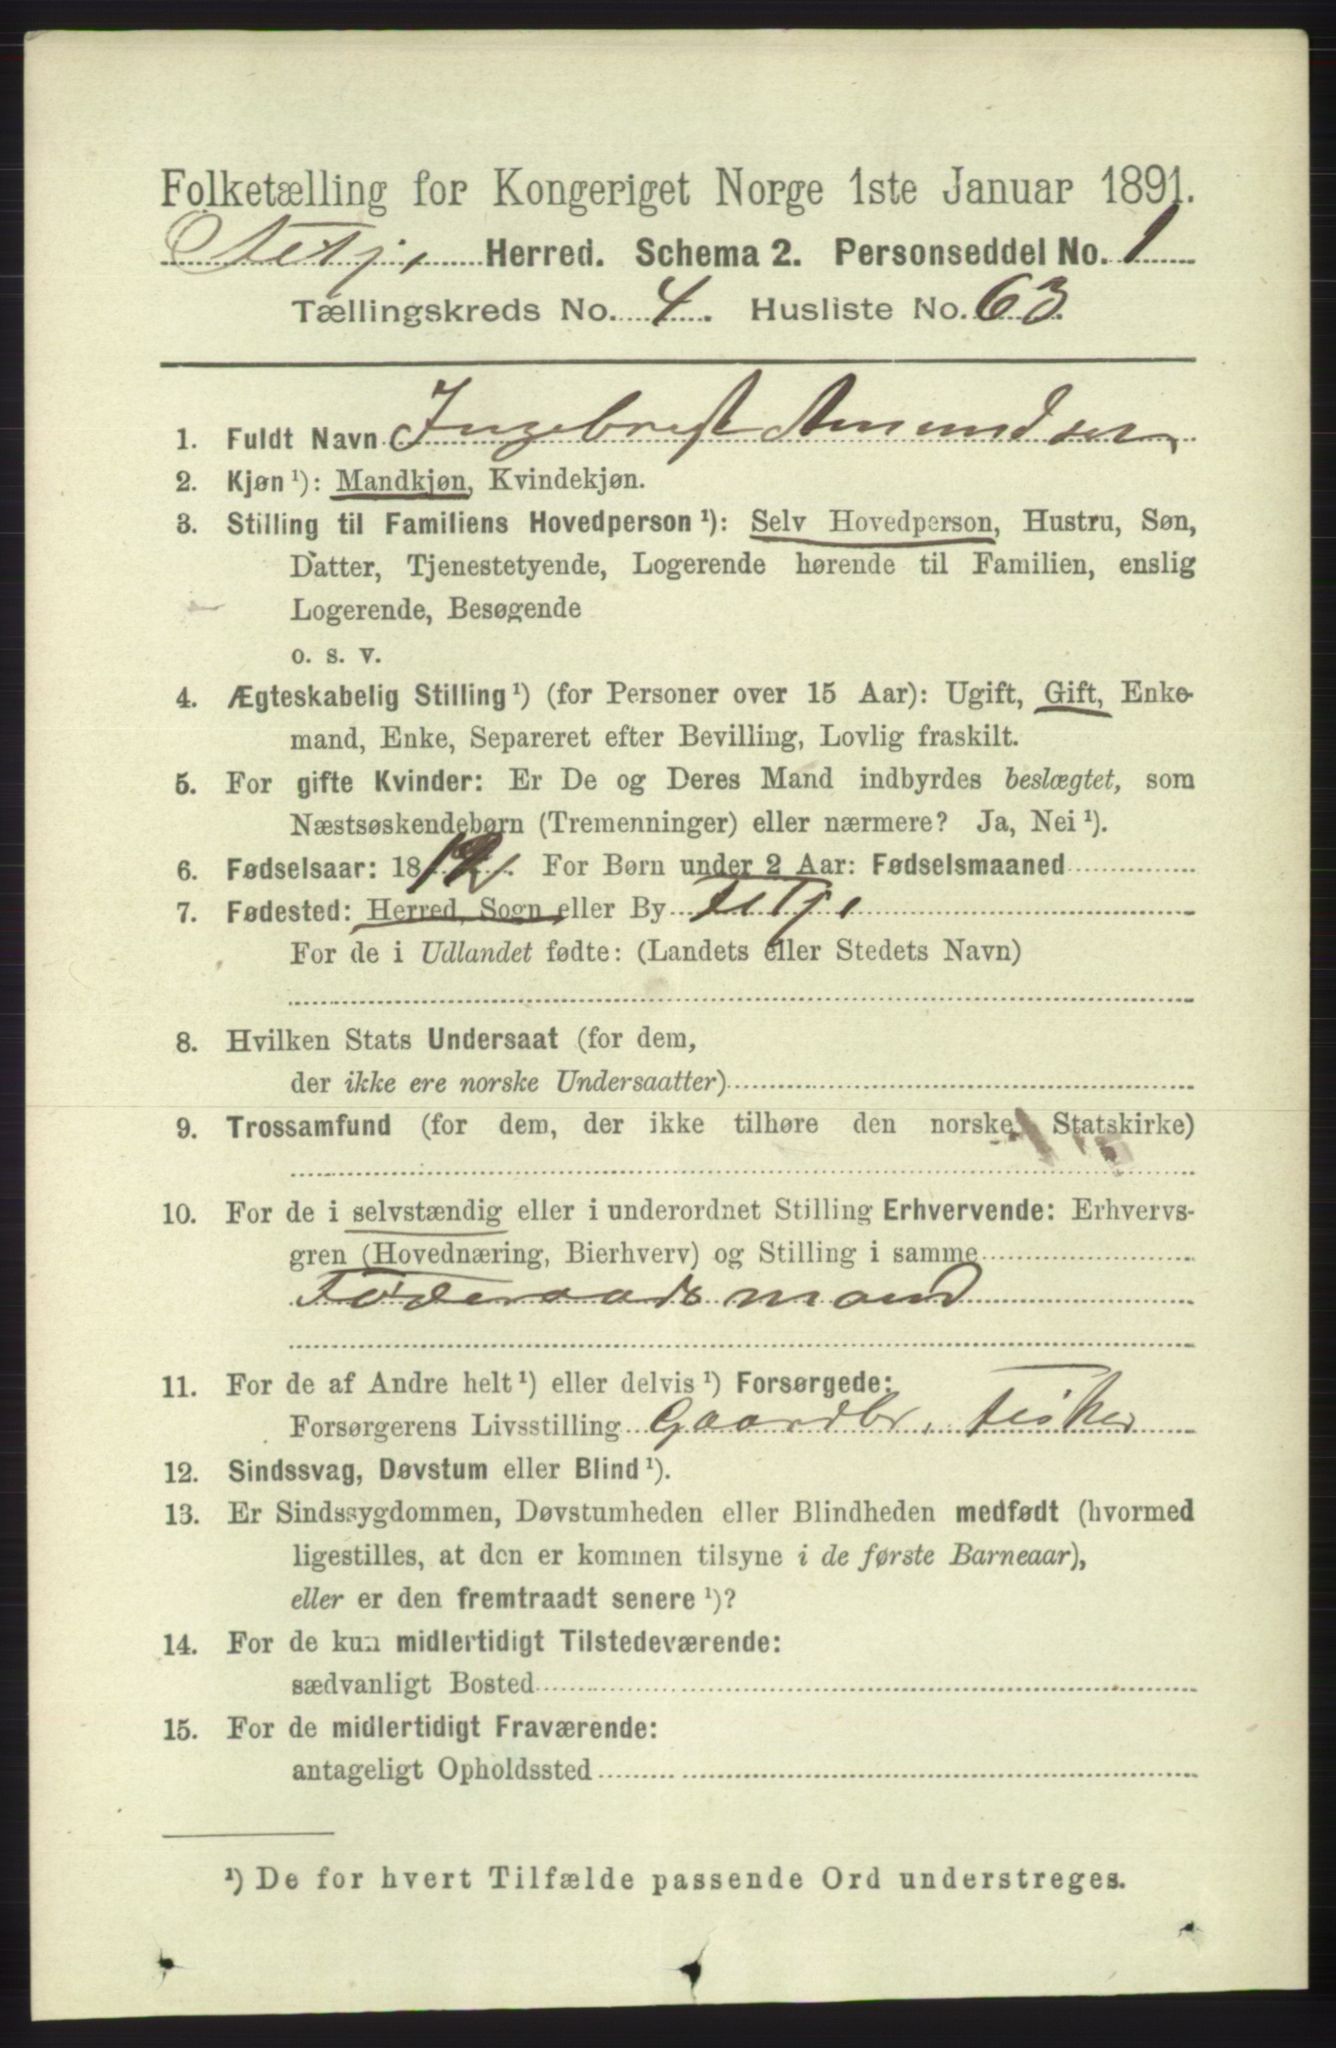 Folketælling for Kongeriget Norge 1ste Januar 1891.
Fitje Herred. Schema 2. Personseddel No. 1
Tællingskreds No. 4. Husliste No. 63.
1. Fuldt Navn Ingebregt Amundsen
2. Kjøn ¹): Mandkjøn, Kvindekjøn.
3. Stilling til Familiens Hovedperson ¹): Selv Hovedperson, Hustru, Søn,
Datter, Tjenestetyende, Logerende hørende til Familien, enslig
Logerende, Besøgende
o. s. v.
4. Ægteskabelig Stilling ¹) (for Personer over 15 Aar): Ugift, Gift, Enke-
mand, Enke, Separeret efter Bevilling, Lovlig fraskilt.
5. For gifte Kvinder: Er De og Deres Mand indbyrdes beslægtet, som
Næstsøskendebørn (Tremenninger) eller nærmere? Ja, Nei ¹).
6. Fødselsaar: 18 For Børn under 2 Aar: Fødselsmaaned
7. Fødested: Herred, Sogn eller By Fitje
For de i Udlandet fødte: (Landets eller Stedets Navn)
8. Hvilken Stats Undersaat (for dem,
der ikke ere norske Undersaatter)
9. Trossamfund (for dem, der ikke tilhøre den norske Statskirke)
10. For de i selvstændig eller i underordnet Stilling Erhvervende: Erhvervs-
gren (Hovednæring, Bierhverv) og Stilling i samme
Föderaadsmand
11. For de af Andre helt ¹) eller delvis ¹) Forsørgede:
Forsørgerens Livsstilling Gaardbr. Fisker
12. Sindssvag, Døvstum eller Blind ¹).
13. Er Sindssygdommen, Døvstumheden eller Blindheden medfødt (hvormed
ligestilles, at den er kommen tilsyne i de første Barneaar),
eller er den fremtraadt senere ¹)?
14. For de kun midlertidigt Tilstedeværende:
sædvanligt Bosted
15. For de midlertidigt Fraværende:
antageligt Opholdssted
¹) De for hvert Tilfælde passende Ord understreges.